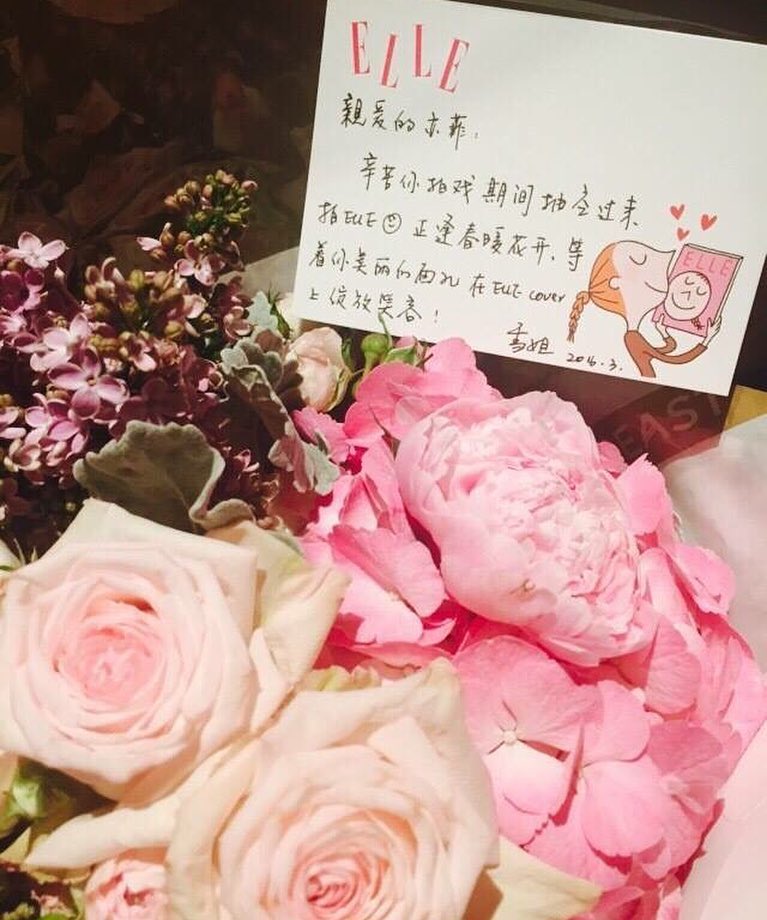 ELLE
親爱的亦菲：
辛苦你拍戏期间抽空过来
拍ELLE 正逢春暖花开，等
着你美丽的面孔在ELLE cover
上绽放笑容！
雪姐 2016.3.
ELLE
EAST